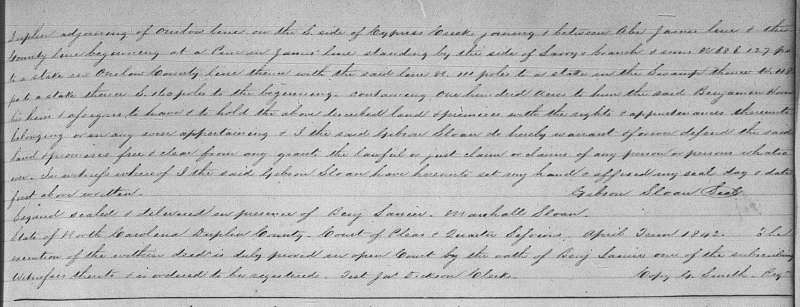 Duplin adjoining of Onslow line on the S. side of Cypress Creek joining & between Abr James line & the
County line beginning at a Pine in James line standing by the side of branch & runs N 88 E 127 po
to a stake in Onslow County line thence with the said line N. 111 poles to a stake in the Swamp thence W. 118
po to a stake thence S. poles to the beginning. containing One hundred Acres to him the said Benjamin
his heirs & assigns to have & to hold the above described land & premises with the rights & appurtenances thereunto
belonging or in any wise appertaining & I the said Gibson Sloan do hereby warrant & forever defend the said
land & premises free & clear from any grant the lawful or just claim or claims of any person or persons whatso
ever. In witness whereof I the said Gibson Sloan have hereunto set my hand & affixed my seal day & date
first above written. Gibson Sloan Seal
Signed sealed & delivered in presence of Benj Lanier. Marshall Sloan.
State of North Carolina Duplin County. Court of Pleas & Quarter Sessions April Term 1842. The
execution of the within deed is duly proved in open Court by the oath of Benj Lanier one of the subscribing
Witnesses thereto & is ordered to be registered. Test Jas Dickson Clerk. Copy G. Smith Regr